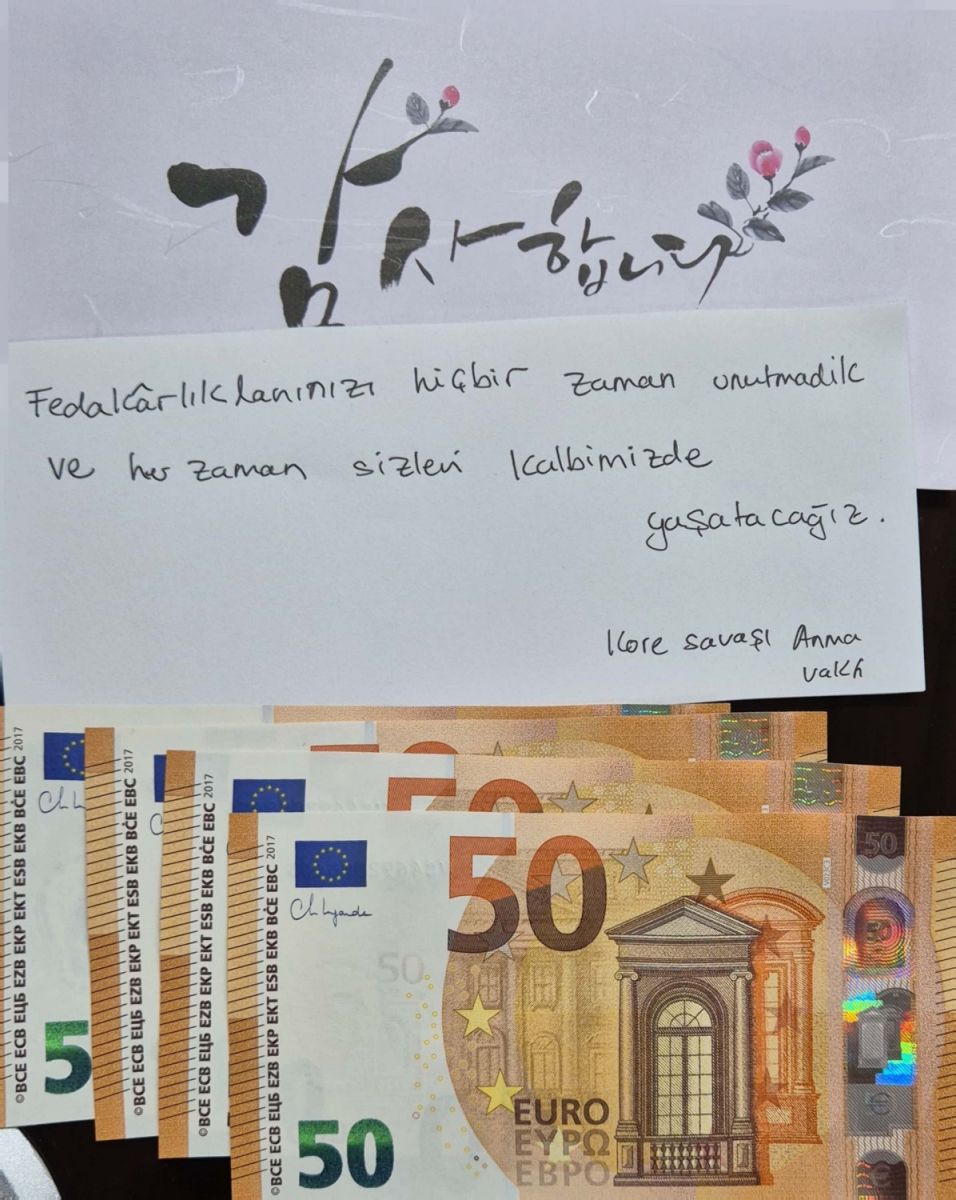 감사합니다
Fedakârlıklarınızı hiçbir zaman unutmadık
ve her zaman sizleri kalbimizde
yaşatacağız.
Kore savaşı Anma
vakfı
©BCE ECB ЕЦБ EZB EKP EKT ESB EKB BĊE EBC 2017
©BCE ECB ЕЦБ EZB EKP EKT ESB EKB BĊE EBC 2017
©BCE ECB ЕЦБ EZB EKP EKT ESB EKB BĊE EBC 2017
©BCE ECB ЕЦБ EZB EKP EKT ESB EKB BĊE EBC 2017
5
50
50
50
50
50
EURO
ΕΥΡΩ
ЕВРО
50